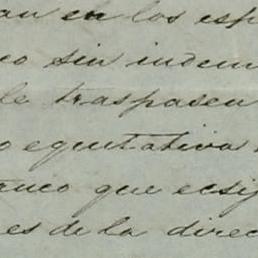 an en los esp
eo sin indem
le traspasen
o equitativa
truco que ecsij
es de la direc